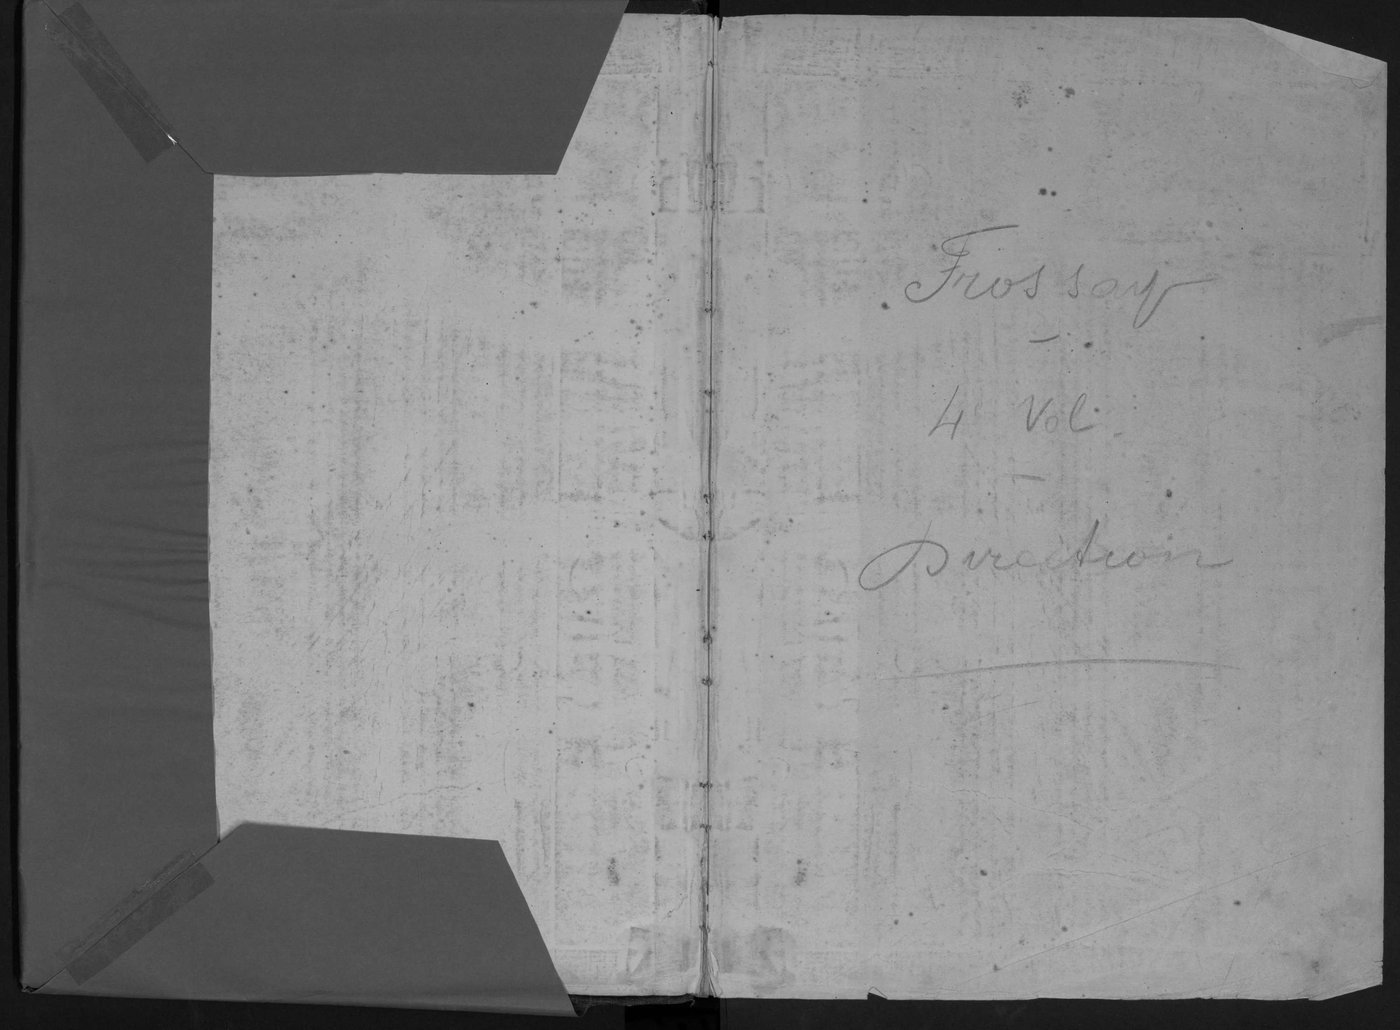 Frossay
–
4 Vol.
–
Direction